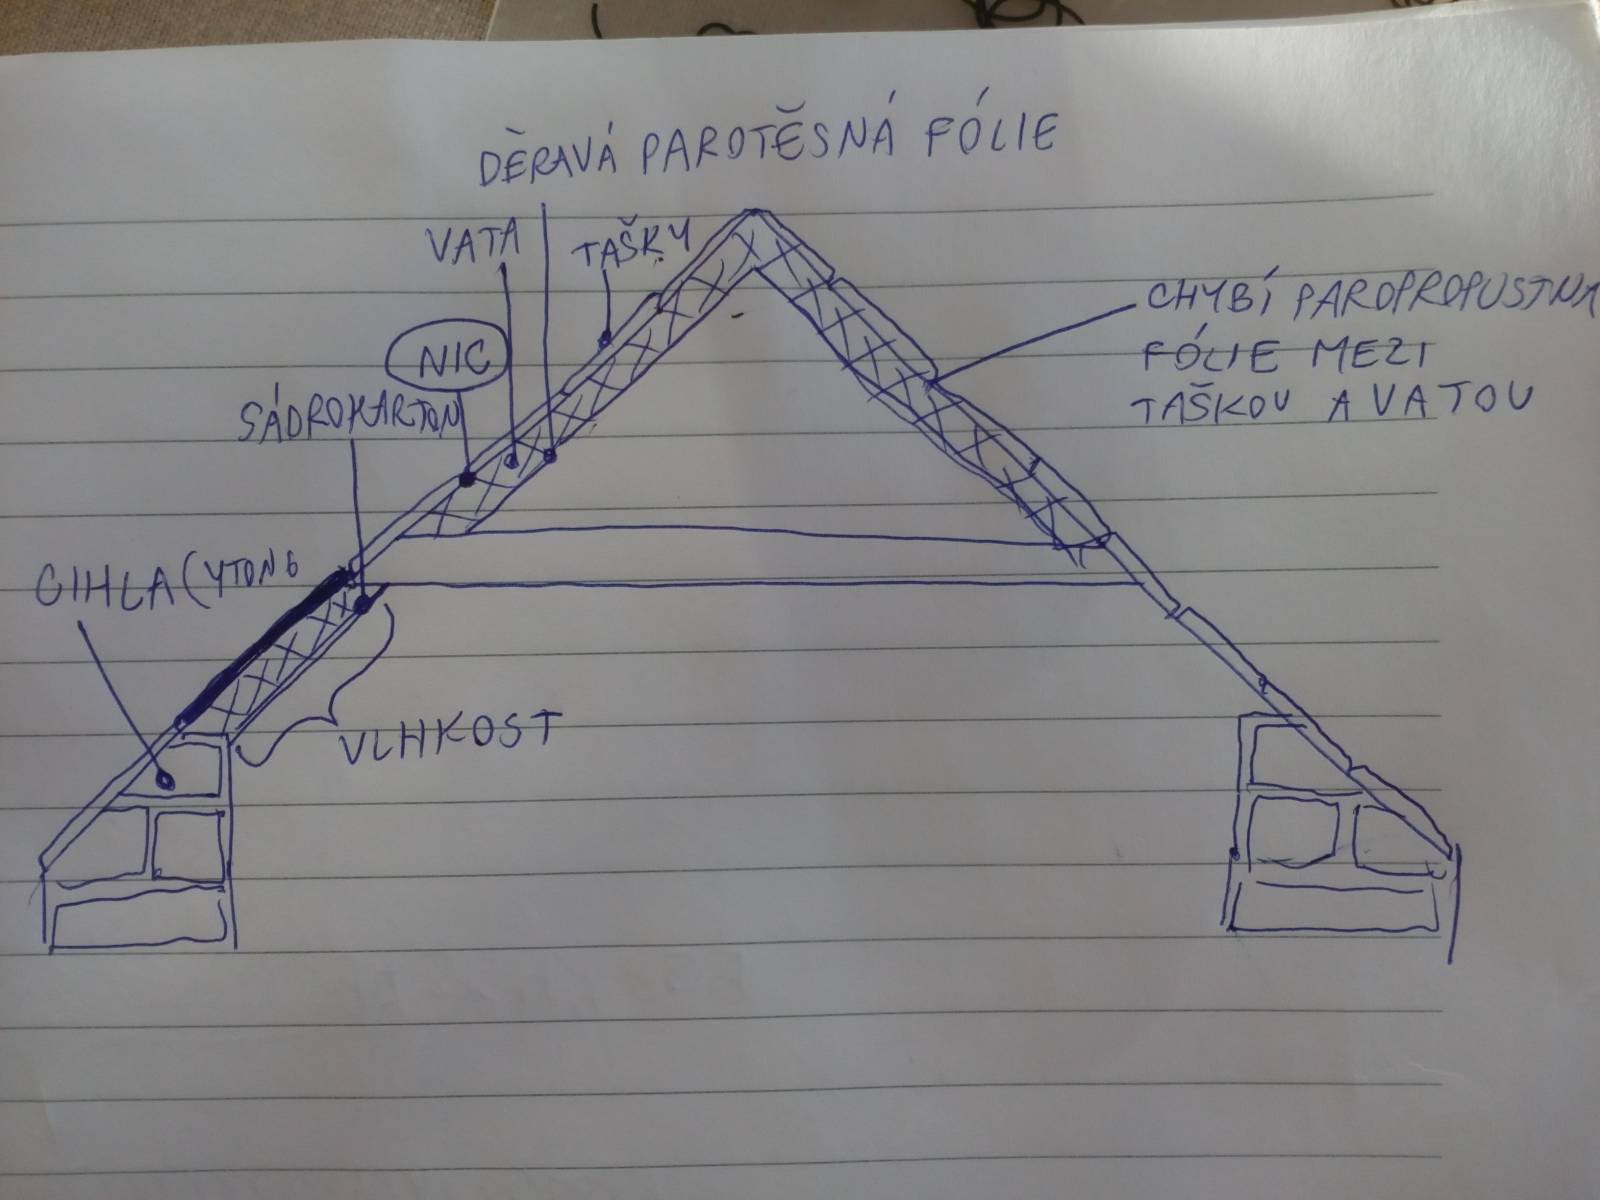 DĚRAVÁ PAROTĚSNÁ FÓLIE
VATA
TAŠKY
NIC
SÁDROKARTON
CHYBÍ PAROPROPUSTNÁ
FÓLIE MEZI
TAŠKOU A VATOU
CIHLA (YTONG
VLHKOST